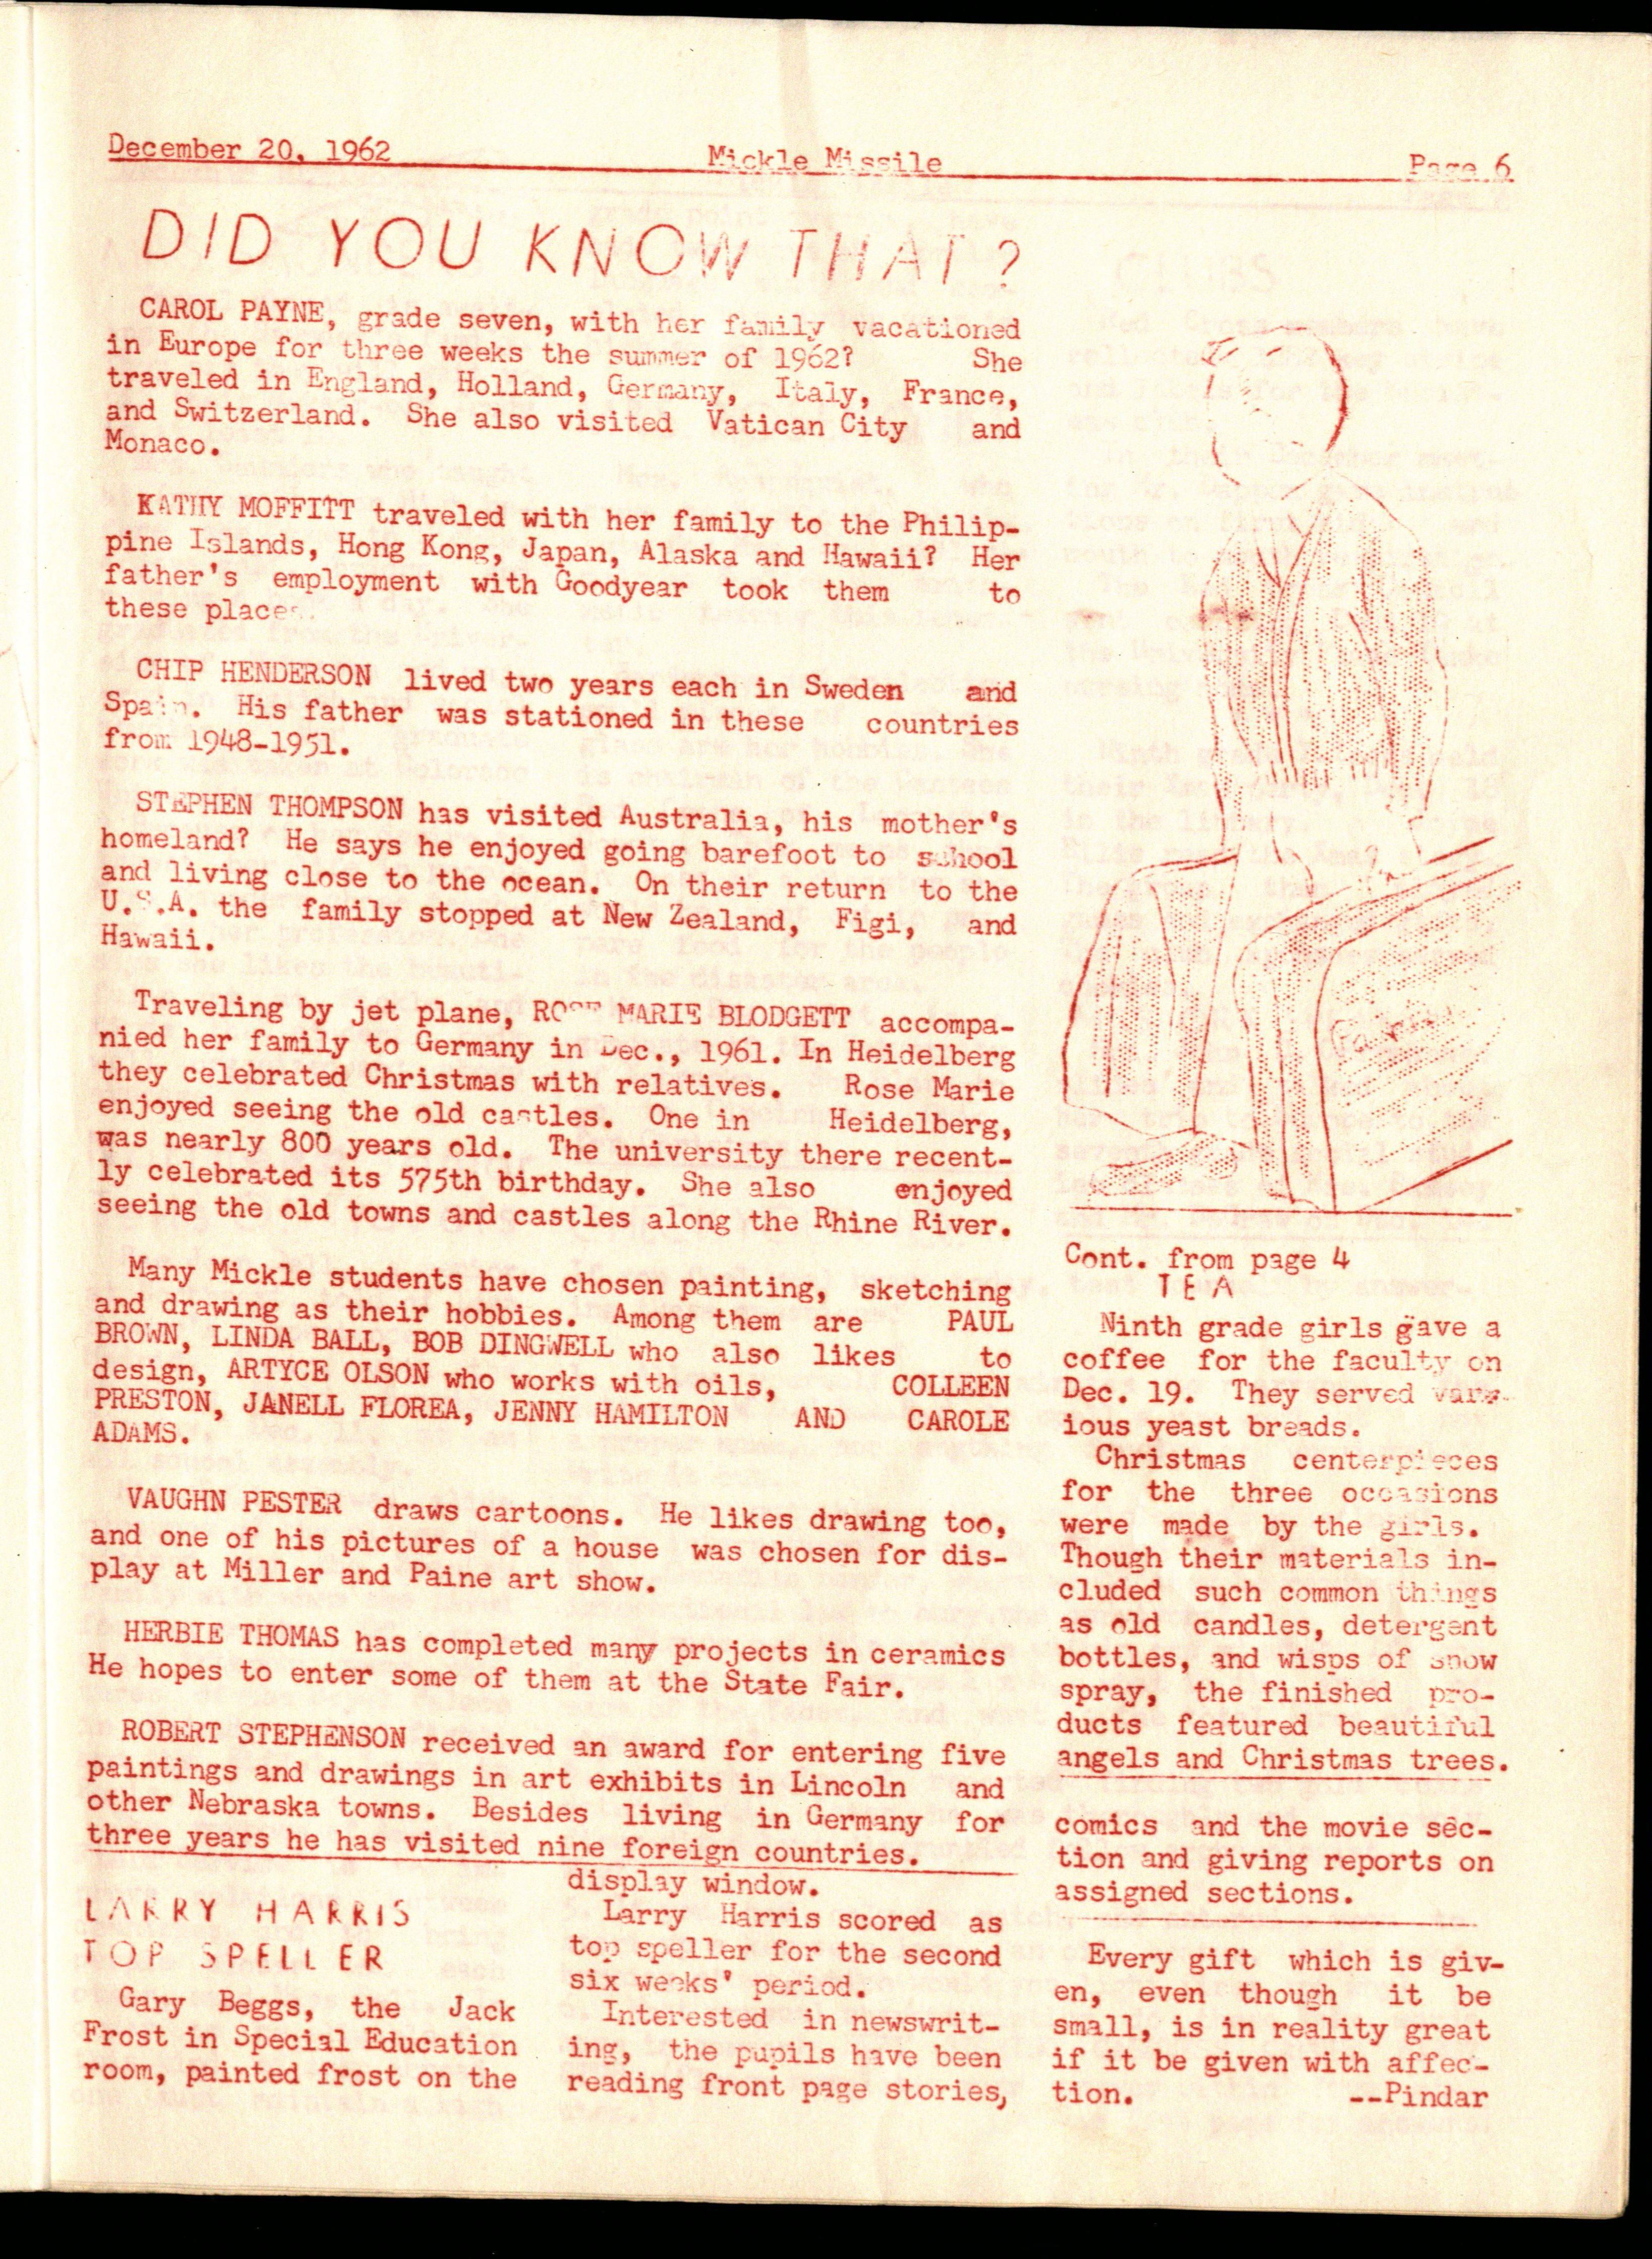 December 20, 1962 Mickle Missile Page 6
DID YOU KNOW THAT?
CAROL PAYNE, grade seven, with her family vacationed
in Europe for three weeks the summer of 1962? She
traveled in England, Holland, Germany, Italy, France,
and Switzerland. She also visited Vatican City and
Monaco.
KATHY MOFFITT traveled with her family to the Philip-
pine Islands, Hong Kong, Japan, Alaska and Hawaii? Her
father's employment with Goodyear took them to
these places.
CHIP HENDERSON lived two years each in Sweden and
Spain. His father was stationed in these countries
from 1948-1951.
STEPHEN THOMPSON has visited Australia, his mother's
homeland? He says he enjoyed going barefoot to school
and living close to the ocean. On their return to the
U.S.A. the family stopped at New Zealand, Figi, and
Hawaii.
Traveling by jet plane, ROSE MARIE BLODGETT accompa-
nied her family to Germany in Dec., 1961. In Heidelberg
they celebrated Christmas with relatives. Rose Marie
enjoyed seeing the old castles. One in Heidelberg,
was nearly 800 years old. The university there recent-
ly celebrated its 575th birthday. She also enjoyed
seeing the old towns and castles along the Rhine River.
Many Mickle students have chosen painting, sketching
and drawing as their hobbies. Among them are PAUL
BROWN, LINDA BALL, BOB DINGWELL who also likes to
design, ARTYCE OLSON who works with oils, COLLEEN
PRESTON, JANELL FLOREA, JENNY HAMILTON AND CAROLE
ADAMS.
VAUGHN PESTER draws cartoons. He likes drawing too,
and one of his pictures of a house was chosen for dis-
play at Miller and Paine art show.
HERBIE THOMAS has completed many projects in ceramics
He hopes to enter some of them at the State Fair.
ROBERT STEPHENSON received an award for entering five
paintings and drawings in art exhibits in Lincoln and
other Nebraska towns. Besides living in Germany for
three years he has visited nine foreign countries.
LARRY HARRIS
TOP SPELLER
Gary Beggs, the Jack
Frost in Special Education
room, painted frost on the
display window.
Larry Harris scored as
top speller for the second
six weeks' period.
Interested in newswrit-
ing, the pupils have been
reading front page stories,
Cont. from page 4
TEA
Ninth grade girls gave a
coffee for the faculty on
Dec. 19. They served var-
ious yeast breads.
Christmas centerpieces
for the three occasions
were made by the girls.
Though their materials in-
cluded such common things
as old candles, detergent
bottles, and wisps of snow
spray, the finished pro-
ducts featured beautiful
angels and Christmas trees.
comics and the movie sec-
tion and giving reports on
assigned sections.
Every gift which is giv-
en, even though it be
small, is in reality great
if it be given with affec-
tion. --Pindar